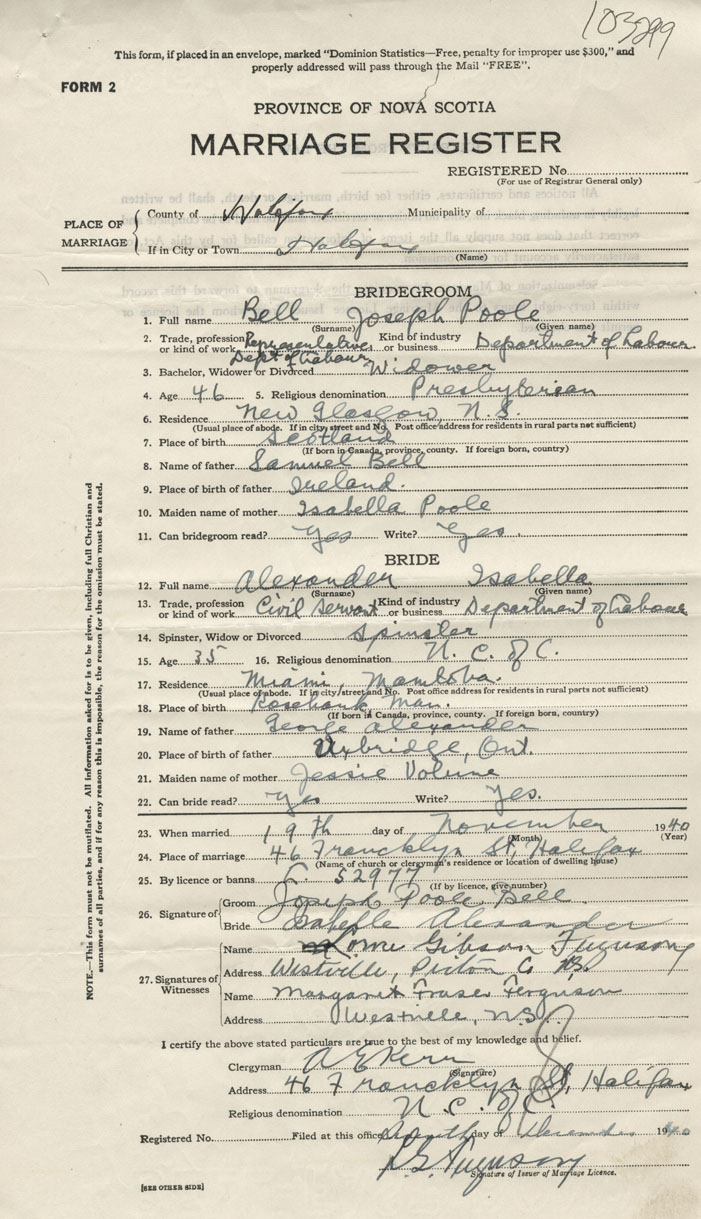 103299
This form, if placed in an envelope, marked "Dominion Statistics—Free, penalty for improper use $300," and
properly addressed will pass through the Mail "FREE".
FORM 2
PROVINCE OF NOVA SCOTIA
MARRIAGE REGISTER
REGISTERED No.
(For use of Registrar General only)
PLACE OF MARRIAGE
County of Halifax Municipality of
If in City or Town Halifax
(Name)
BRIDEGROOM
1. Full name Bell Joseph Poole
(Surname) (Given name)
2. Trade, profession or kind of work Representative Dept of Labour Kind of industry or business Department of Labour.
3. Bachelor, Widower or Divorced Widower
4. Age 46 5. Religious denomination Presbyterian
6. Residence New Glasgow, N.S.
(Usual place of abode. If in city street and No. Post office address for residents in rural parts not sufficient)
7. Place of birth Scotland
(If born in Canada, province, county. If foreign born, country)
8. Name of father Samuel Bell
9. Place of birth of father Ireland.
10. Maiden name of mother Isabella Poole
11. Can bridegroom read? Yes Write? Yes.
BRIDE
12. Full name Alexander Isabella
(Surname) (Given name)
13. Trade, profession or kind of work Civil Servant Kind of industry or business Department of Labour
14. Spinster, Widow or Divorced Spinster
15. Age 35 16. Religious denomination U. C. of C.
17. Residence Miami, Manitoba.
(Usual place of abode. If in city street and No. Post office address for residents in rural parts not sufficient)
18. Place of birth Rosebank Man.
(If born in Canada, province, county. If foreign born, country)
19. Name of father George Alexander
20. Place of birth of father Uxbridge, Ont.
21. Maiden name of mother Jessie
22. Can bride read? Yes Write? Yes.
23. When married 19th day of November 1940
(Month) (Year)
24. Place of marriage 46 Francklyn St, Halifax
(Name of church or clergyman's residence or location of dwelling house)
25. By licence or banns 52977
(If by licence, give number)
26. Signature of
Groom Joseph Poole Bell
Bride Isabelle Alexander
27. Signatures of Witnesses
Name Lorne Gibson Ferguson
Address Westville, Pictou Co NS.
Name Margaret Fraser Ferguson
Address Westville, N.S.
I certify the above stated particulars are true to the best of my knowledge and belief.
Clergyman A E Kerr
(Signature)
Address 46 Francklyn St, Halifax
Religious denomination U. C. of C.
Registered No. Filed at this office day of December 1940
Ferguson
Signature of Issuer of Marriage Licence.
[SEE OTHER SIDE]
NOTE.—This form must not be mutilated. All information asked for is to be given, including full Christian and
surnames of all parties, and if for any reason this is impossible, the reason for the omission must be stated.